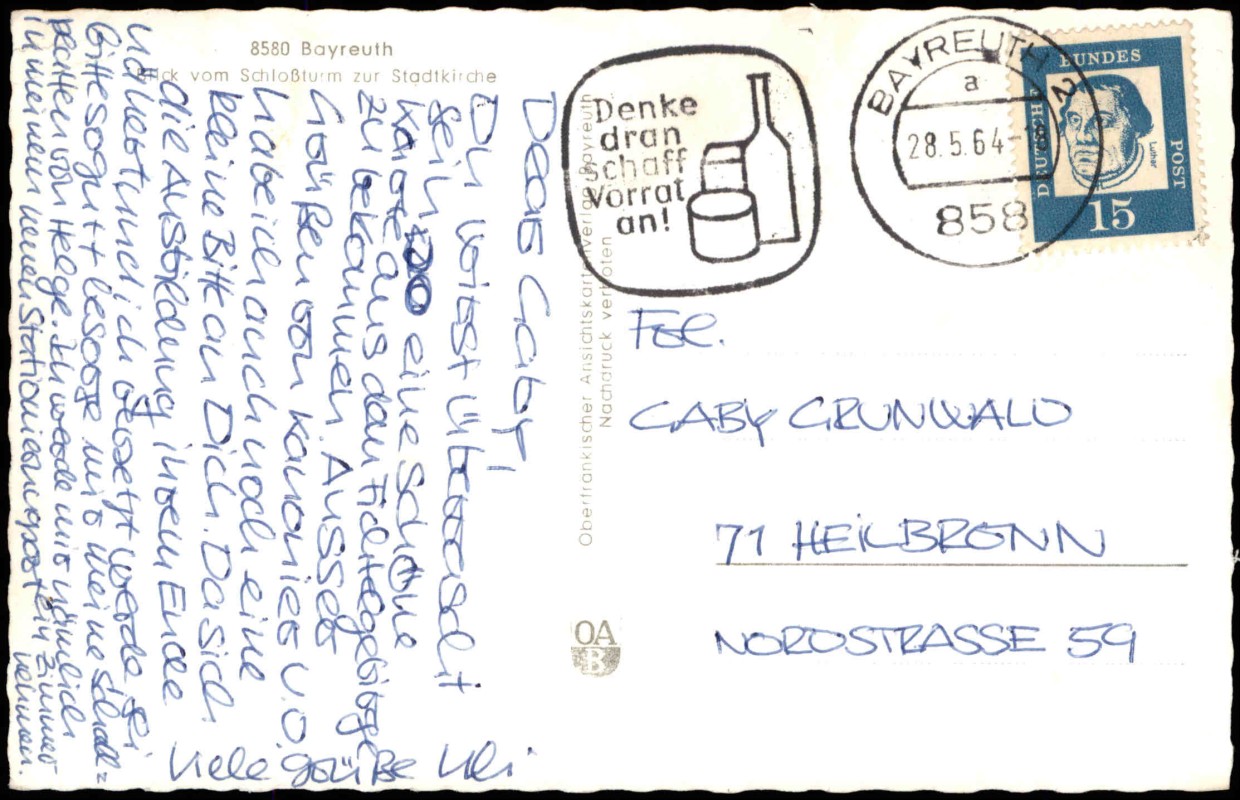 8580 Bayreuth
Blick vom Schloßturm zur Stadtkirche
Dear Gaby,
Du wirst überrascht
sein eine schöne
Karte aus dem Fichtelgebirge
zu bekommen. Ausser
Grüßen vom Kanonier U.O.
habe ich auch noch eine
kleine Bitte an Dich. Da sich
die Ausbildung ihrem Ende
nähert und ich versetzt werde sei
bitte so gut + besorge mir meine Schall=
platten von Helge. Ich werde mir nämlich
in meinem neuen Stationierungsort ein Zimmer
nehmen.
Viele Grüße Uli
Oberfränkischer Ansichtskartenverlag Bayreuth
Nachdruck verboten
OA
B
Denke
dran
schaff
Vorrat
an!
BAYREUTH 2
a
28.5.64-18
858
DEUTSCHE BUNDES POST
Luther
15
Frl.
GABY GRUNWALD
71 HEILBRONN
NORDSTRASSE 59